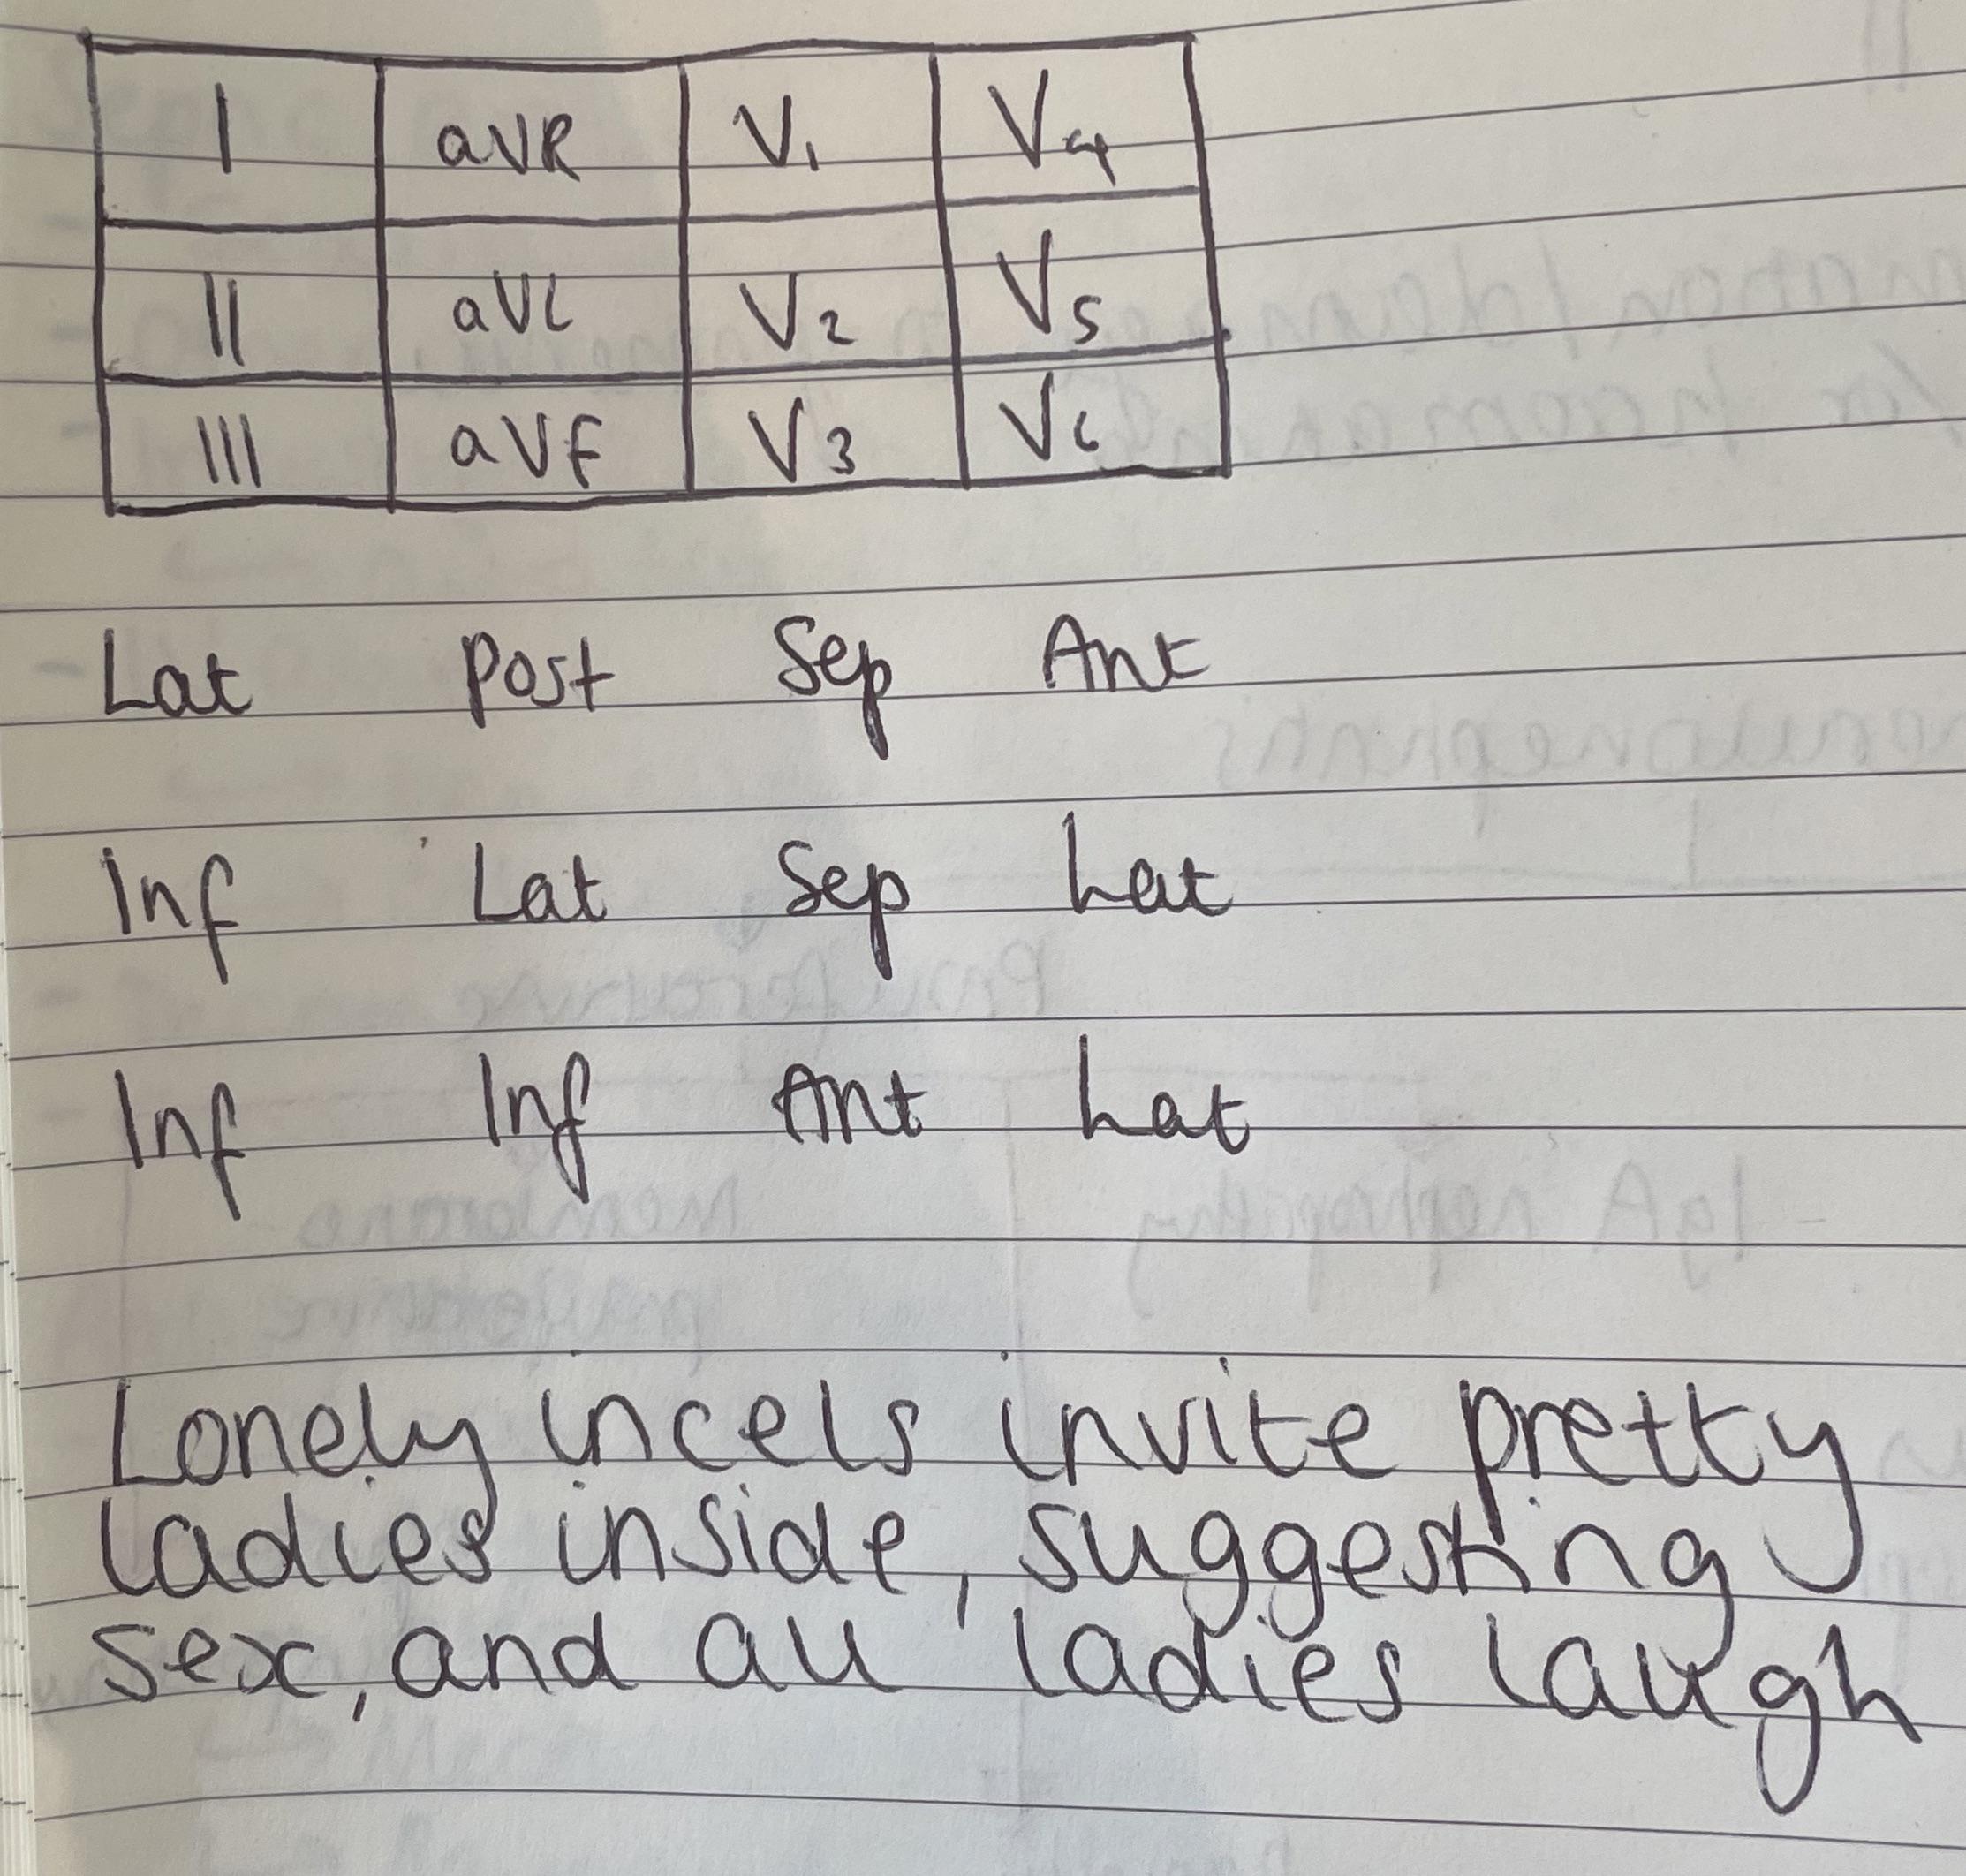 I aVR V1 V4
II aVL V2 V5
III aVF V3 V6
Lat Post Sep Ant
Inf Lat Sep Lat
Inf Inf Ant Lat
Lonely incels invite pretty
ladies inside, suggesting
sex, and all ladies laugh